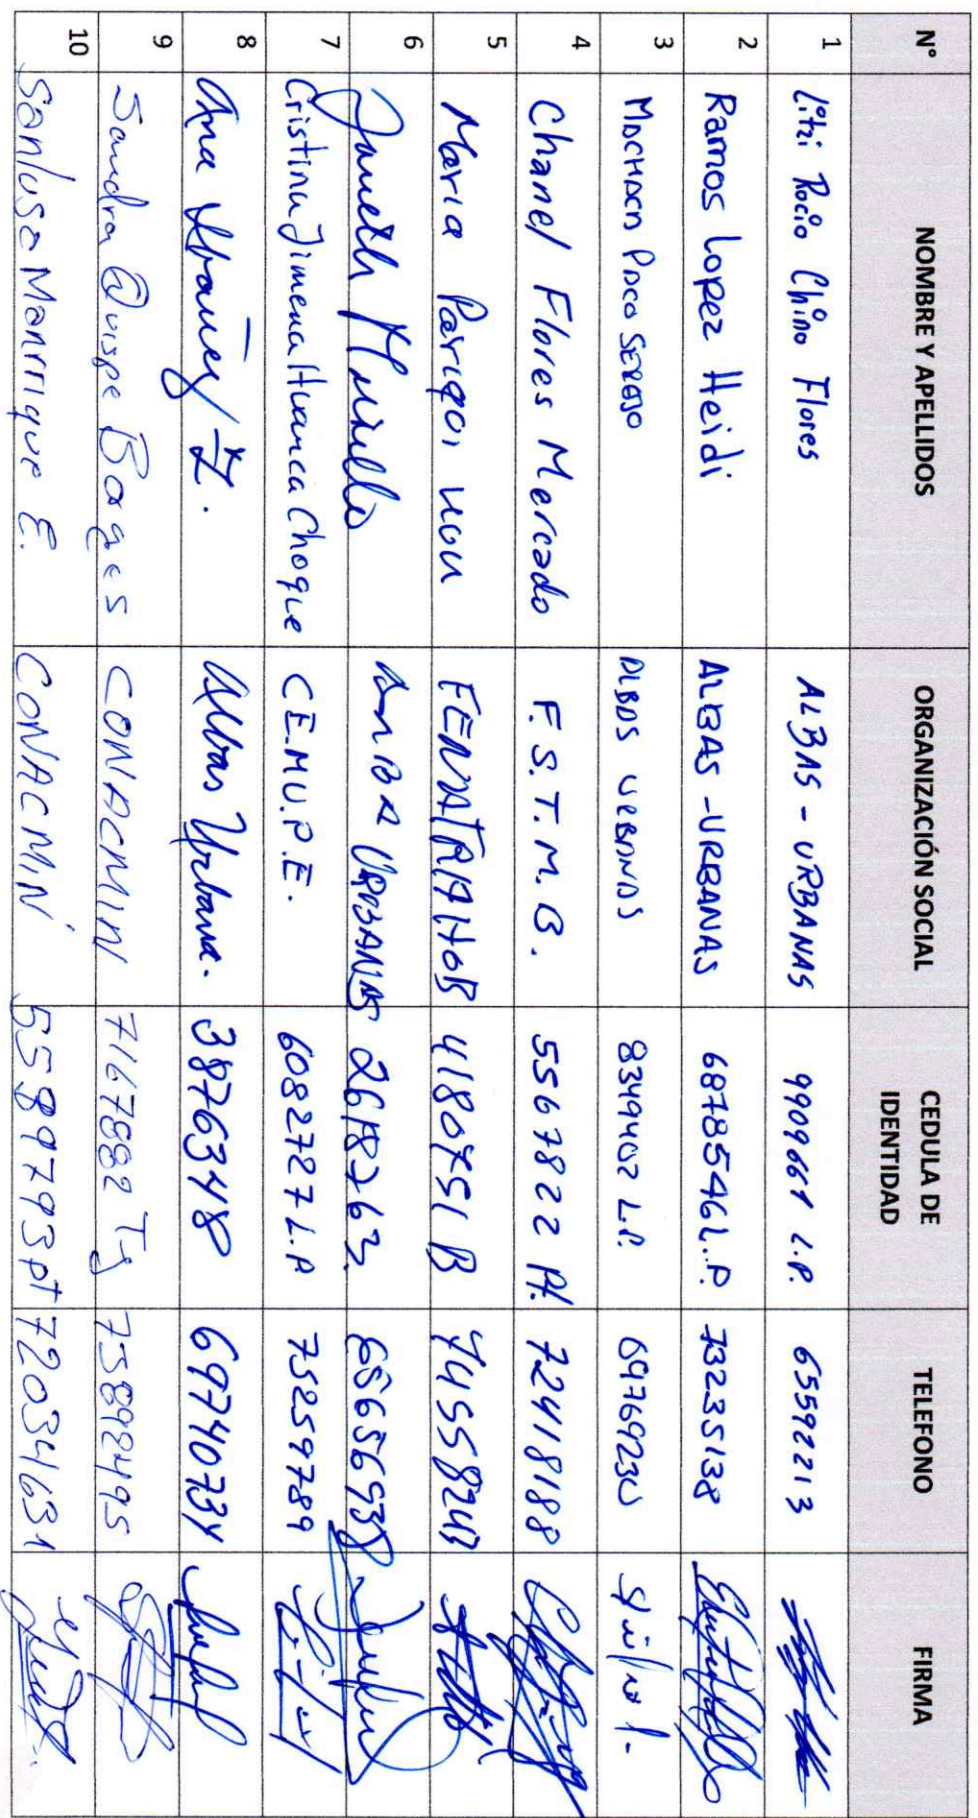 N° NOMBRE Y APELLIDOS ORGANIZACIÓN SOCIAL CEDULA DE IDENTIDAD TELEFONO FIRMA
1 Litzi Rocio Chino Flores ALBAS - URBANAS 9909661 L.P. 65592213
2 Ramos Lopez Heidi ALBAS - URBANAS 6878546 L.P. 73235138
3 MACHACA PACO SERGIO ALBAS URBANAS 8349402 L.P. 69769230
4 Chanel Flores Mercado F.S.T.M.B. 5567822 Pt. 72418188
5 Maria FENATRAHOB 4180751 B 74558249
6 Janeth Murillo URBANAS 2618763 65656938
7 Cristina Jimena Huanca Choque C.E.M.U.P.E. 6082727 L.P 75259789
8 Ana Albas Urbana. 3876348 69740734
9 Sandra Quispe Borges CONACMIN 7167882 Tj 75892495
10 Manrrique E. CONACMIN 5589793 pt 72034631